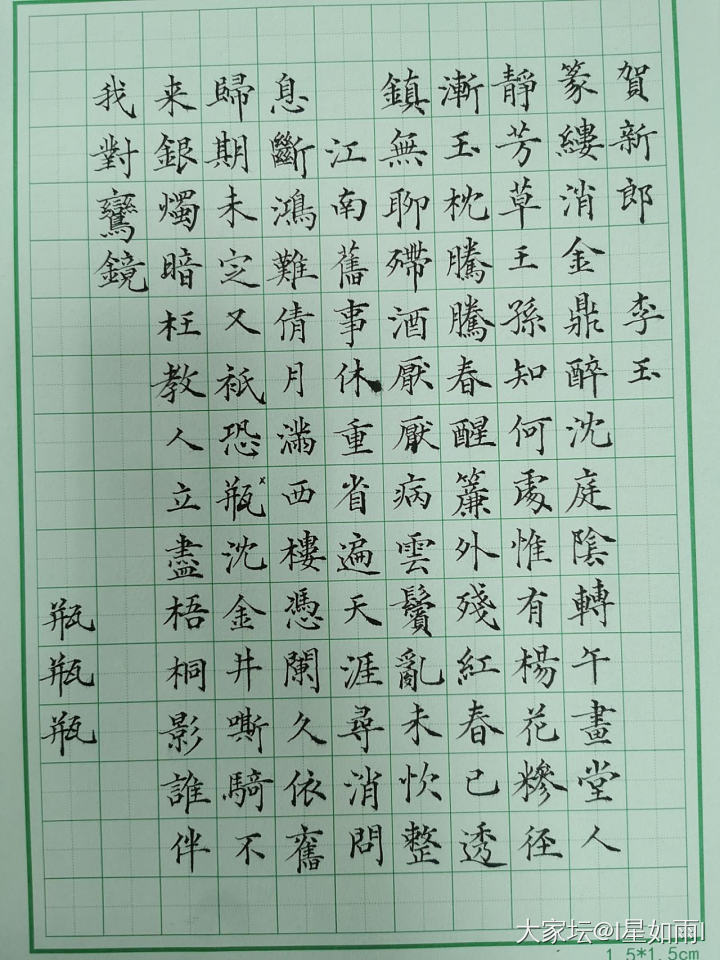 賀新郎 李玉
篆縷消金鼎醉沈庭陰轉午畫堂人
靜芳草王孫知何處惟有楊花糝徑
漸玉枕騰騰春醒簾外殘紅春已透
鎮無聊殢酒厭厭病雲鬢亂未忺整
江南舊事休重省遍天涯尋消問
息斷鴻難倩月滿西樓憑闌久依舊
歸期未定又衹恐瓶沈金井嘶騎不
来銀燭暗枉教人立盡梧桐影誰伴
我對鸞鏡
瓶瓶瓶
大家坛@I星如雨I
1.5*1.5cm